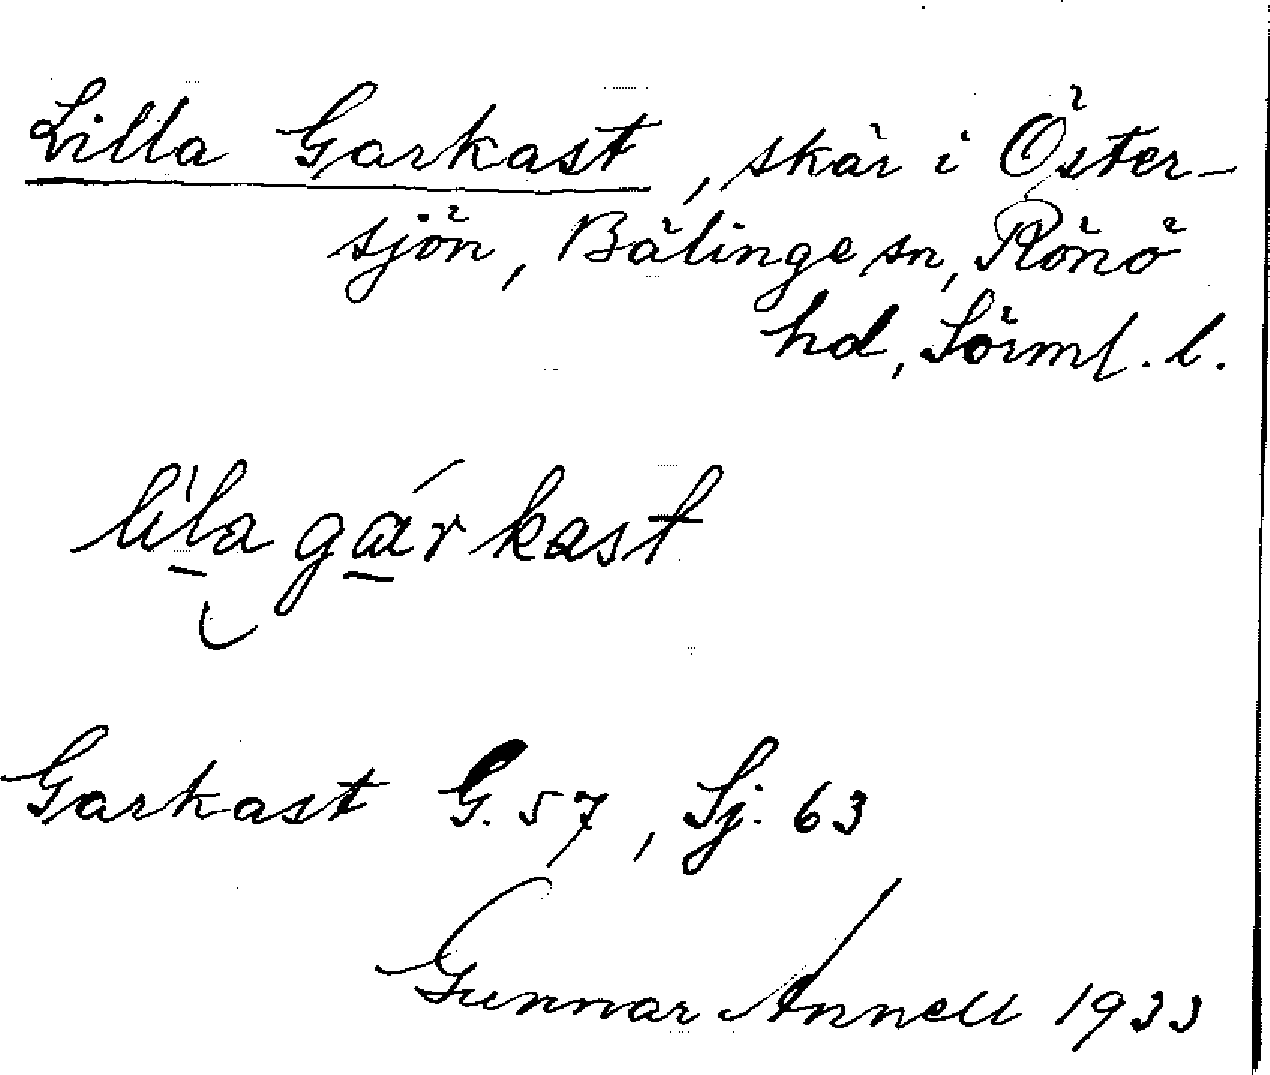 Lilla Garkast, skär i Öster-
sjön, Bälinge sn, Rönö
hd, Sörml. l.
lila gárkast
Garkast G. 57, Sj. 63
Gunnar Annell 1933